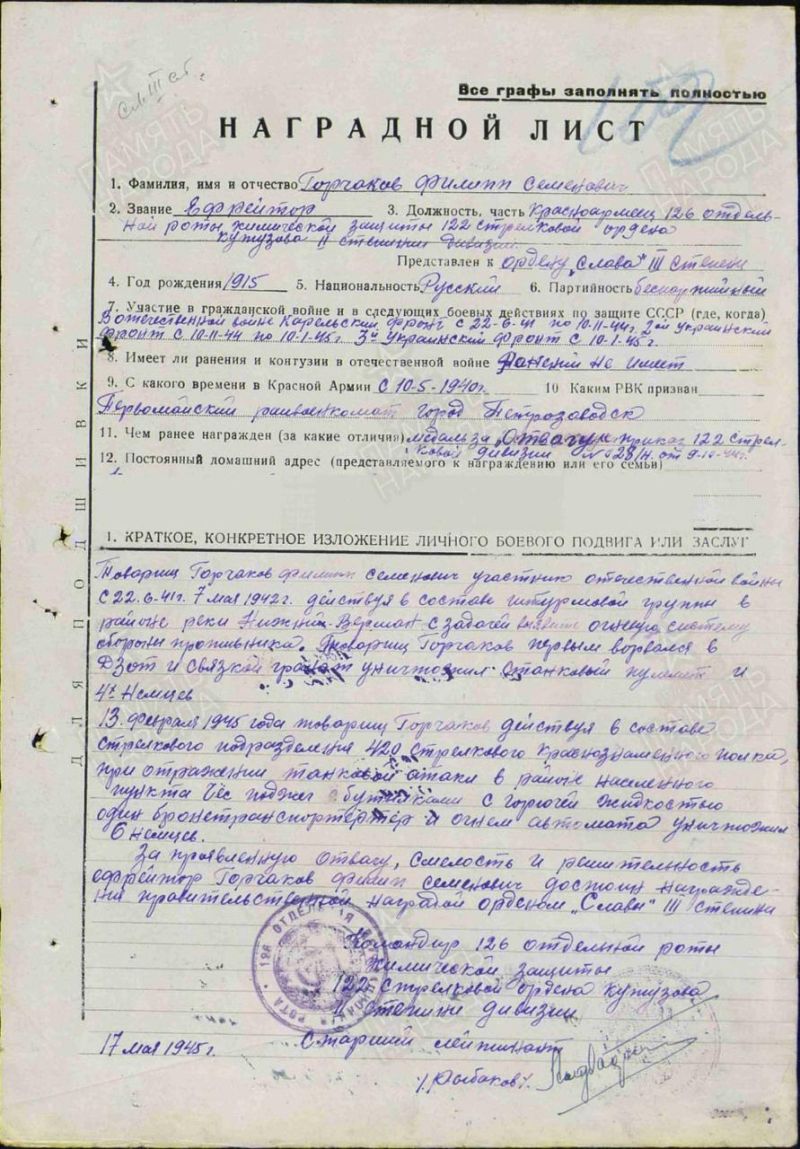 Сл. III ст.
Все графы заполнять полностью
НАГРАДНОЙ ЛИСТ
1. Фамилия, имя и отчество Горчаков Филипп Семенович
2. Звание Ефрейтор 3. Должность, часть Красноармеец 126 отдель-
ной роты химической защиты 122 стрелковой ордена
кутузова II степени дивизии
Представлен к ордену „Слава" III степени
4. Год рождения 1915 5. Национальность Русский 6. Партийность беспартийный
7. Участие в гражданской войне и в следующих боевых действиях по защите СССР (где, когда)
В отечественной войне Карельский фронт с 22-6-41 по 10-11-44г. 2ой Украинский
фронт с 10-11-44 по 10-1-45г. 3й Украинский фронт с 10-1-45г.
8. Имеет ли ранения и контузии в отечественной войне Ранений не имеет
9. С какого времени в Красной Армии с 10-5-1940г. 10 Каким РВК призван
Первомайский райвоенкомат город Петрозаводск
11. Чем ранее награжден (за какие отличия) медаль за „Отвагу" приказ 122 стрел-
ковой дивизии № 028/н. от 9-10-44г.
12. Постоянный домашний адрес (представляемого к награждению или его семьи)
ДЛЯ ПОДШИВКИ
I. КРАТКОЕ, КОНКРЕТНОЕ ИЗЛОЖЕНИЕ ЛИЧНОГО БОЕВОГО ПОДВИГА ИЛИ ЗАСЛУГ
Товарищ Горчаков Филипп Семенович участник отечественной войны
с 22.6-41г. 7 мая 1942г. действуя в составе штурмовой группы в
районе реки Нижний-Верман с задачей выявить огневую систему
обороны противника. Товарищ Горчаков первым ворвался в
Дзот и связкой гранат уничтожил станковый пулемет и
4х Немцев
13. февраля 1945 года товарищ Горчаков действуя в составе
стрелкового подразделения 420 стрелкового краснознаменного полка,
при отражении танковой атаки в районе населенного
пункта Чес поджег бутылками с горючей жидкостью
один бронетранспортертер и огнем автомата уничтожил
6 немцев.
За проявленную отвагу, смелость и решительность
ефрейтор Горчаков Филипп Семенович достоин награжде-
ния правительственной наградой орденом „Слава" III степени
Командир 126 отдельной роты
химической защиты
122 стрелковой ордена кутузова
II степени дивизии
Старший лейтенант
17 мая 1945г.
/Рыбаков/.
ПАМЯТЬ НАРОДА